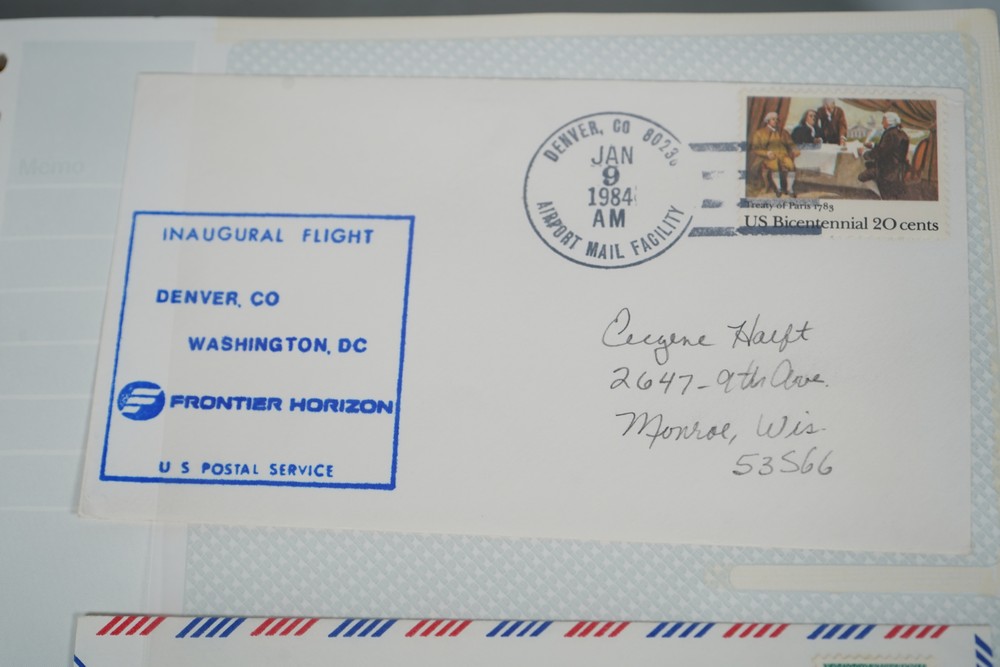 Memo
INAUGURAL FLIGHT
DENVER, CO
WASHINGTON, DC
FRONTIER HORIZON
U S POSTAL SERVICE
DENVER, CO
JAN
9
1984
AM
AIRPORT MAIL FACILITY
Treaty of Paris 1783
US Bicentennial 20 cents
Eugene
2647-9th Ave.
Monroe, Wis.
53566